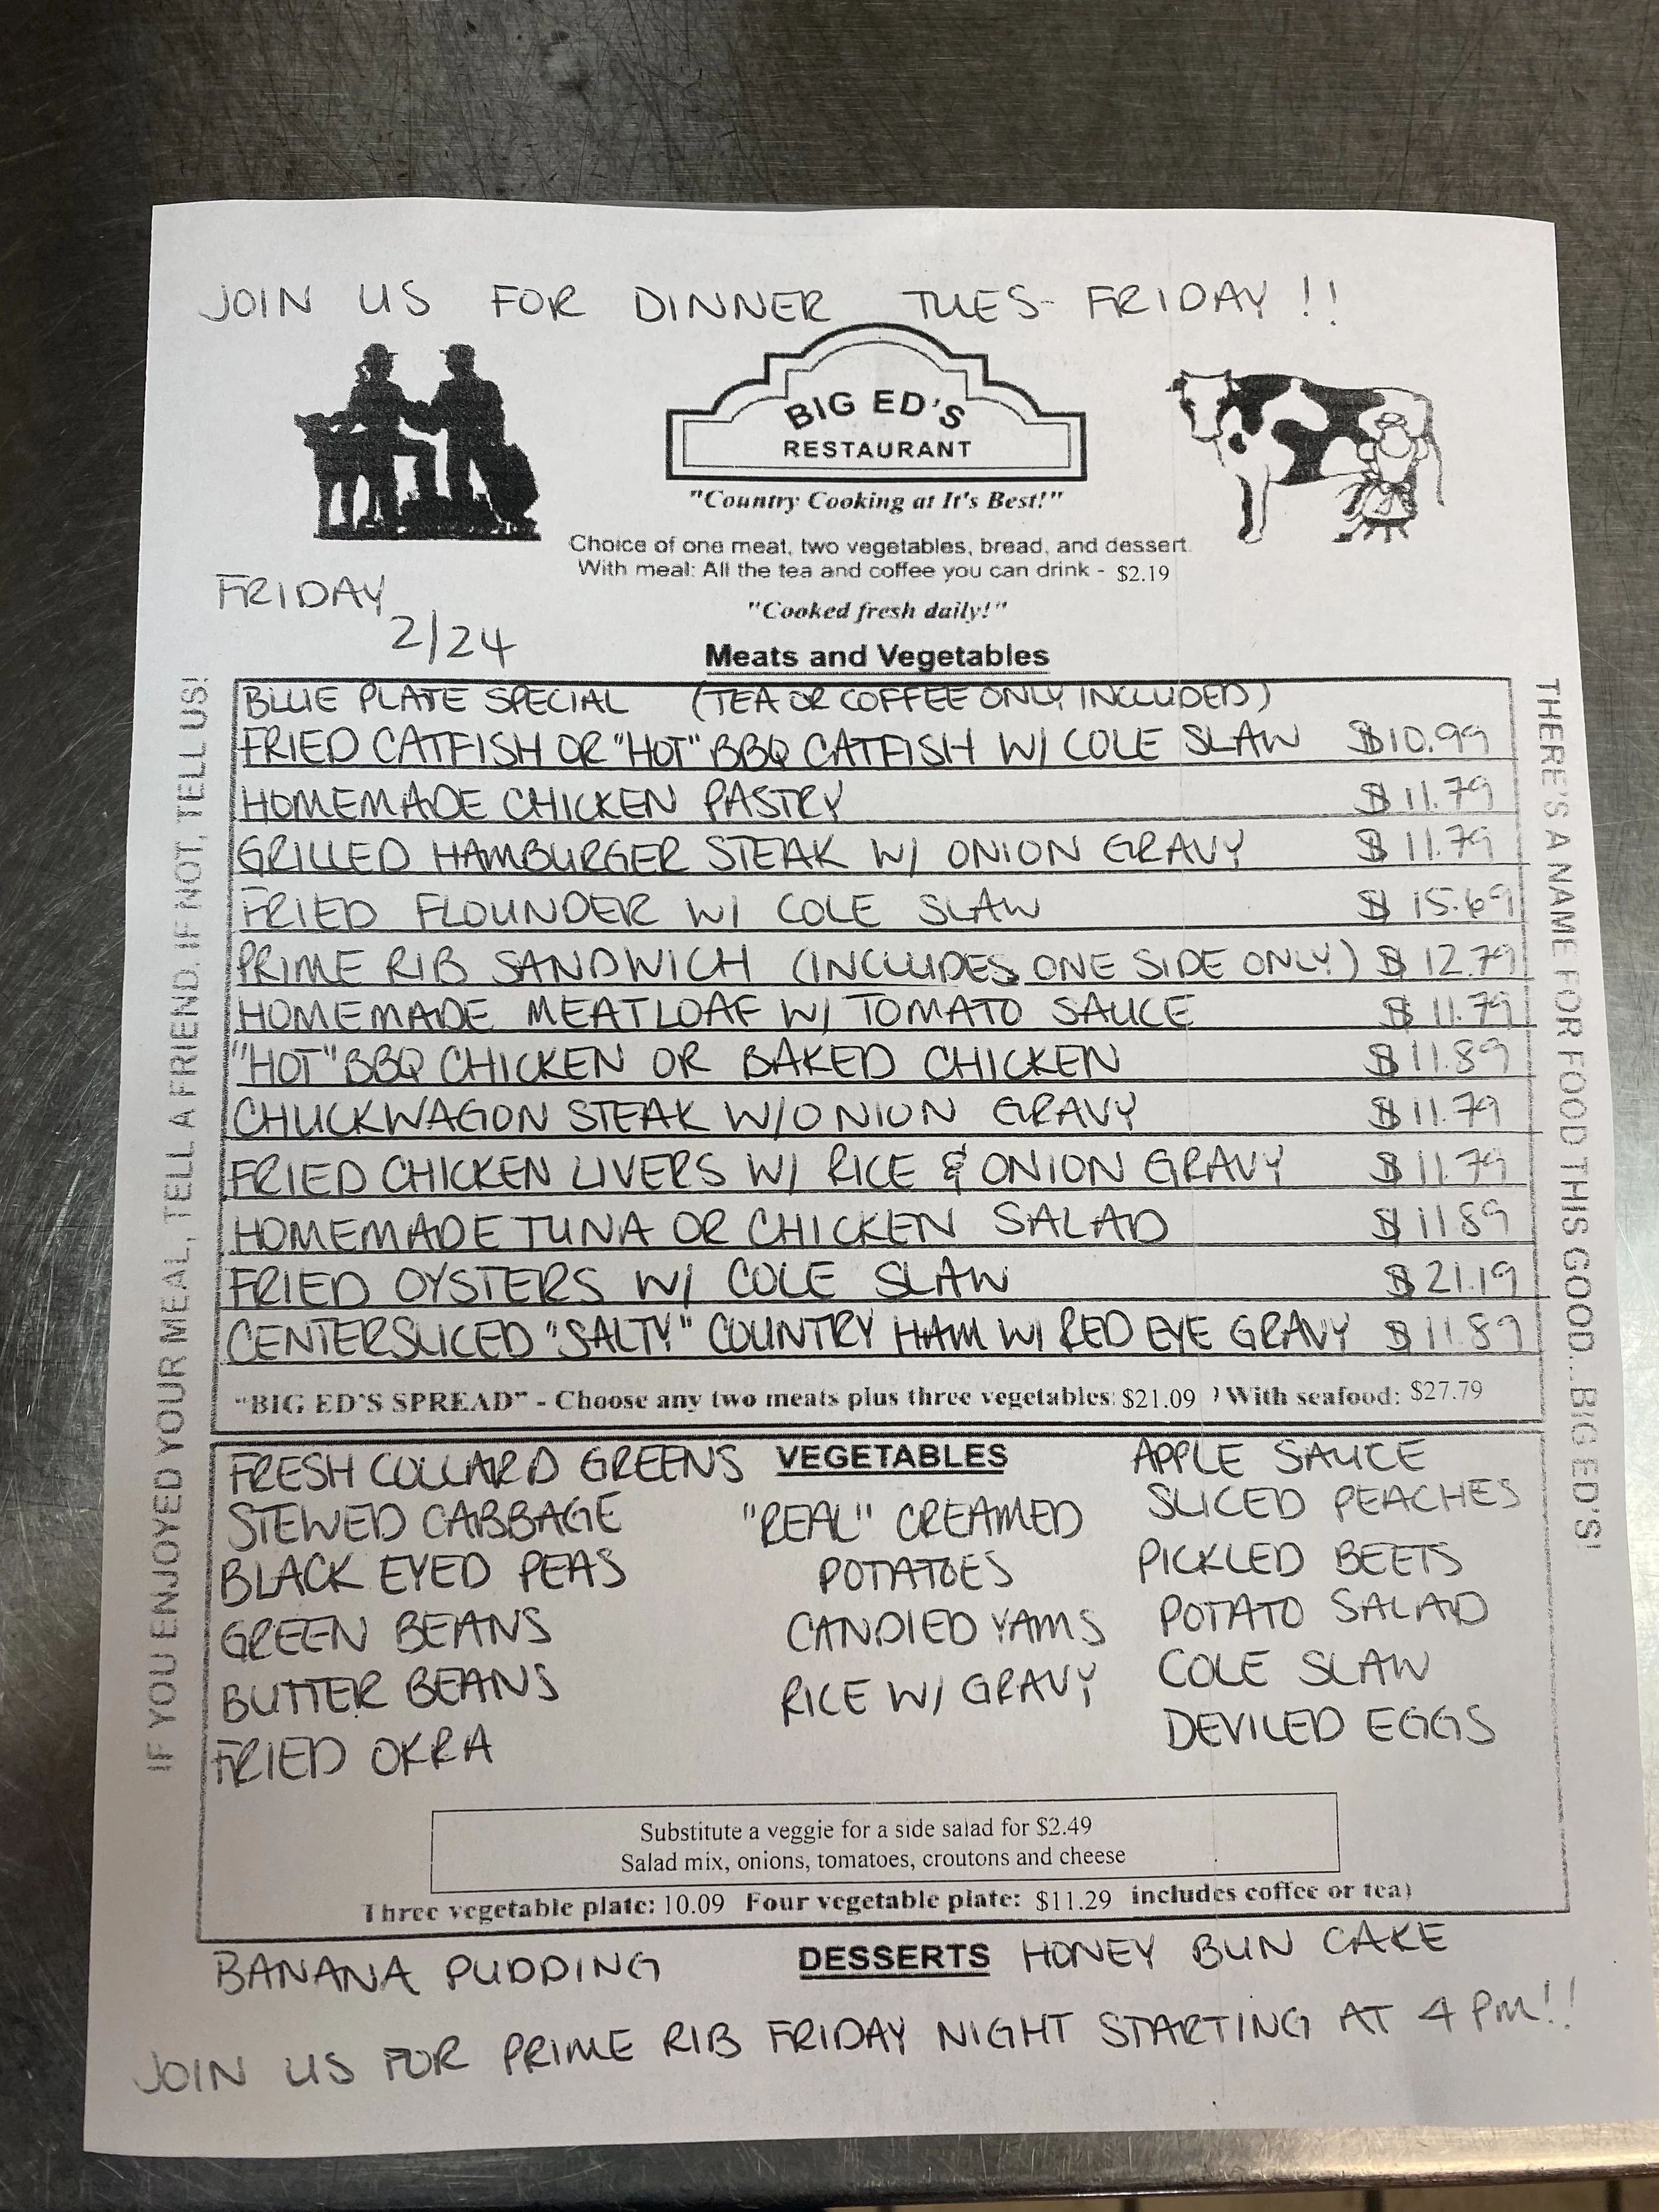 JOIN US FOR DINNER TUES- FRIDAY !!
BIG ED'S
RESTAURANT
"Country Cooking at It's Best!"
Choice of one meat, two vegetables, bread, and dessert.
With meal: All the tea and coffee you can drink - $2.19
FRIDAY
2/24
"Cooked fresh daily!"
Meats and Vegetables
BLUE PLATE SPECIAL (TEA OR COFFEE ONLY INCLUDED)
FRIED CATFISH OR "HOT" BBQ CATFISH W/ COLE SLAW $10.99
HOMEMADE CHICKEN PASTRY $11.79
GRILLED HAMBURGER STEAK W/ ONION GRAVY $11.79
FRIED FLOUNDER W/ COLE SLAW $15.69
PRIME RIB SANDWICH (INCLUDES ONE SIDE ONLY) $12.79
HOMEMADE MEATLOAF W/ TOMATO SAUCE $11.79
"HOT" BBQ CHICKEN OR BAKED CHICKEN $11.89
CHUCKWAGON STEAK W/ONION GRAVY $11.79
FRIED CHICKEN LIVERS W/ RICE & ONION GRAVY $11.79
HOMEMADE TUNA OR CHICKEN SALAD $11.89
FRIED OYSTERS W/ COLE SLAW $21.19
CENTERSLICED "SALTY" COUNTRY HAM W/ RED EYE GRAVY $11.89
"BIG ED'S SPREAD" - Choose any two meats plus three vegetables: $21.09 ) With seafood: $27.79
IF YOU ENJOYED YOUR MEAL, TELL A FRIEND. IF NOT, TELL US!
THERE'S A NAME FOR FOOD THIS GOOD...BIG ED'S!
VEGETABLES
FRESH COLLARD GREENS
STEWED CABBAGE
BLACK EYED PEAS
GREEN BEANS
BUTTER BEANS
FRIED OKRA
"REAL" CREAMED
POTATOES
CANDIED YAMS
RICE W/ GRAVY
APPLE SAUCE
SLICED PEACHES
PICKLED BEETS
POTATO SALAD
COLE SLAW
DEVILED EGGS
Substitute a veggie for a side salad for $2.49
Salad mix, onions, tomatoes, croutons and cheese
Three vegetable plate: 10.09 Four vegetable plate: $11.29 includes coffee or tea)
BANANA PUDDING DESSERTS HONEY BUN CAKE
JOIN US FOR PRIME RIB FRIDAY NIGHT STARTING AT 4 PM!!